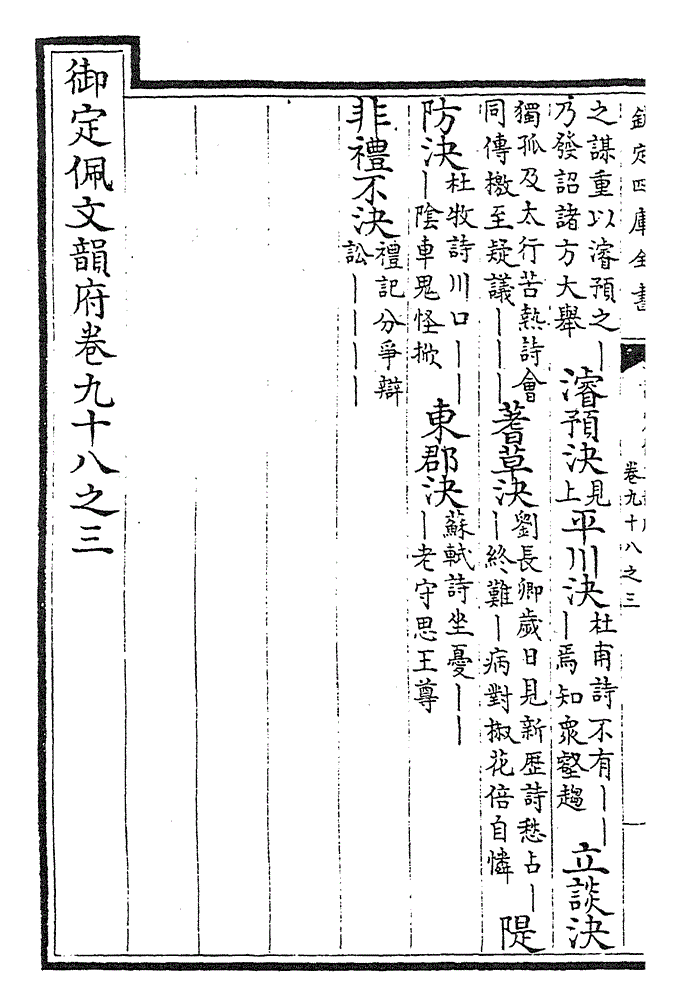 欽定四庫全書
卷九十八之三
之謀重以濬預之｜
乃發詔諸方大舉
濬預決
見
上
平川決
杜甫詩不有｜｜
｜焉知衆壑趨
立談決
獨孤及太行苦熱詩會
同傳檄至疑議｜｜｜
蓍草決
劉長卿歲日見新歷詩愁占｜
｜終難｜病對椒花倍自憐
隄
防決
杜牧詩川口｜｜
｜陰車鬼怪掀
東郡決
蘇軾詩坐憂｜｜
｜老守思王尊
非禮不決
禮記分爭辯
訟｜｜｜｜
御定佩文韻府卷九十八之三